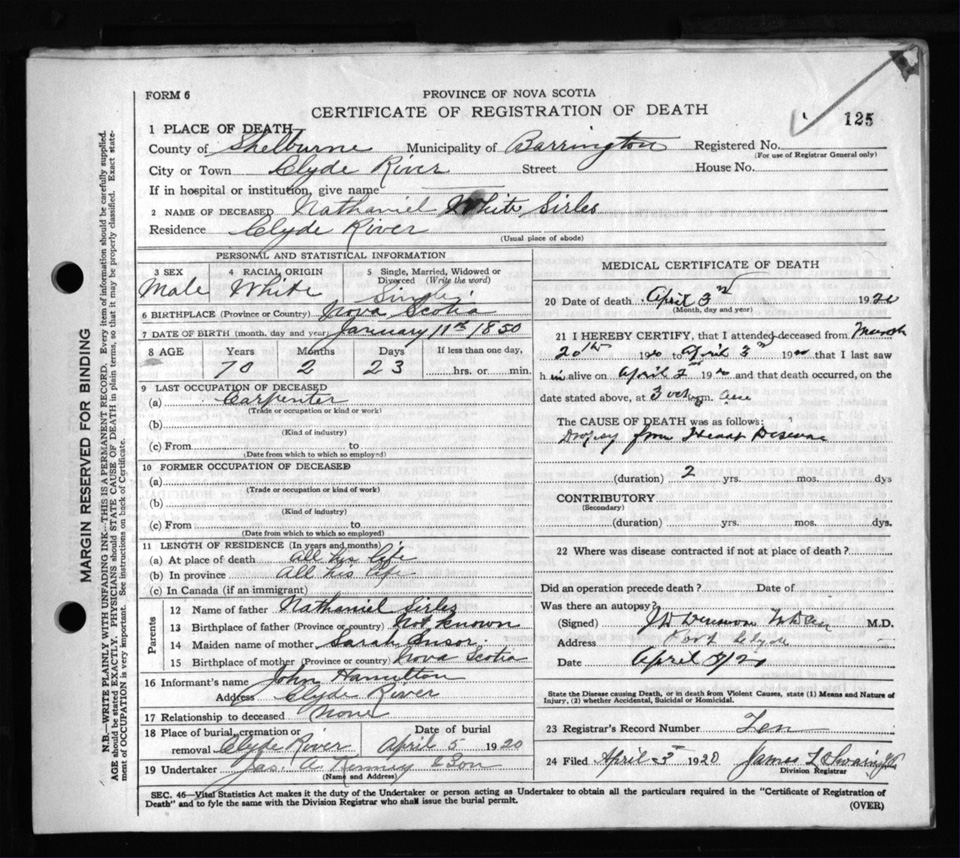 FORM 6
PROVINCE OF NOVA SCOTIA
CERTIFICATE OF REGISTRATION OF DEATH
125
1 PLACE OF DEATH
County of Shelburne Municipality of Barrington Registered No.
(For use of Registrar General only)
City or Town Clyde River Street House No.
If in hospital or institution, give name
2 NAME OF DECEASED Nathaniel White Sirles
Residence Clyde River
(Usual place of abode)
PERSONAL AND STATISTICAL INFORMATION
3 SEX 4 RACIAL ORIGIN 5 Single, Married, Widowed or Divorced (Write the word)
Male White Single
6 BIRTHPLACE (Province or Country) Nova Scotia
7 DATE OF BIRTH (month, day and year) January 11th 1850
8 AGE Years Months Days If less than one day,
70 2 23 hrs. or min.
9 LAST OCCUPATION OF DECEASED
(a) Carpenter
(Trade or occupation or kind or work)
(b)
(Kind of industry)
(c) From to
(Date from which to which so employed)
10 FORMER OCCUPATION OF DECEASED
(a)
(Trade or occupation or kind of work)
(b)
(Kind of industry)
(c) From to
(Date from which to which so employed)
11 LENGTH OF RESIDENCE (In years and months)
(a) At place of death All his life
(b) In province All his life
(c) In Canada (if an immigrant)
Parents
12 Name of father Nathaniel Sirles
13 Birthplace of father (Province or country) Not known
14 Maiden name of mother Sarah
15 Birthplace of mother (Province or country) Nova Scotia
16 Informant's name John Hamilton
Address Clyde River
17 Relationship to deceased None
18 Place of burial, cremation or removal Clyde River
Date of burial April 5 1920
19 Undertaker Jas. A Kenney & Son
(Name and Address)
MEDICAL CERTIFICATE OF DEATH
20 Date of death April 3rd 1920
(Month, day and year)
21 I HEREBY CERTIFY, that I attended deceased from March
20th 1920 to April 3rd 1920 that I last saw
him alive on April 2nd 1920 and that death occurred, on the
date stated above, at 3
The CAUSE OF DEATH was as follows:
Dropsy from Heart Disease
(duration) 2 yrs. mos. dys
CONTRIBUTORY
(Secondary)
(duration) yrs. mos. dys.
22 Where was disease contracted if not at place of death?
Did an operation precede death? Date of
Was there an autopsy?
(Signed) M.D.
Address Port Clyde
Date April 3/20
State the Disease causing Death, or in death from Violent Causes, state (1) Means and Nature of
Injury, (2) whether Accidental, Suicidal or Homicidal.
23 Registrar's Record Number Ten
24 Filed April 5 1920 James
Division Registrar
SEC. 46—Vital Statistics Act makes it the duty of the Undertaker or person acting as Undertaker to obtain all the particulars required in the "Certificate of Registration of
Death" and to fyle the same with the Division Registrar who shall issue the burial permit.
(OVER)
MARGIN RESERVED FOR BINDING
N.B.—WRITE PLAINLY WITH UNFADING INK—THIS IS A PERMANENT RECORD. Every item of information should be carefully supplied.
AGE should be stated EXACTLY. PHYSICIANS should STATE CAUSE OF DEATH in plain terms, so that it may be properly classified. Exact statement
of OCCUPATION is very important. See instructions on back of Certificate.